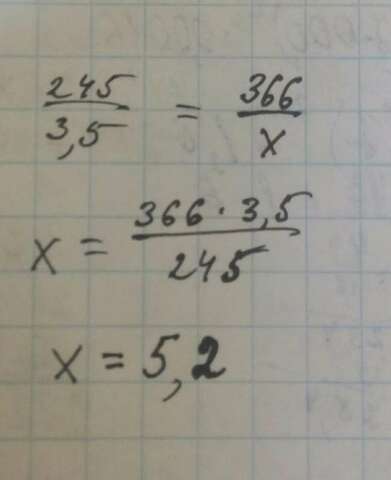 245/3,5 = 366/x
x = 366 · 3,5/245
x = 5,2